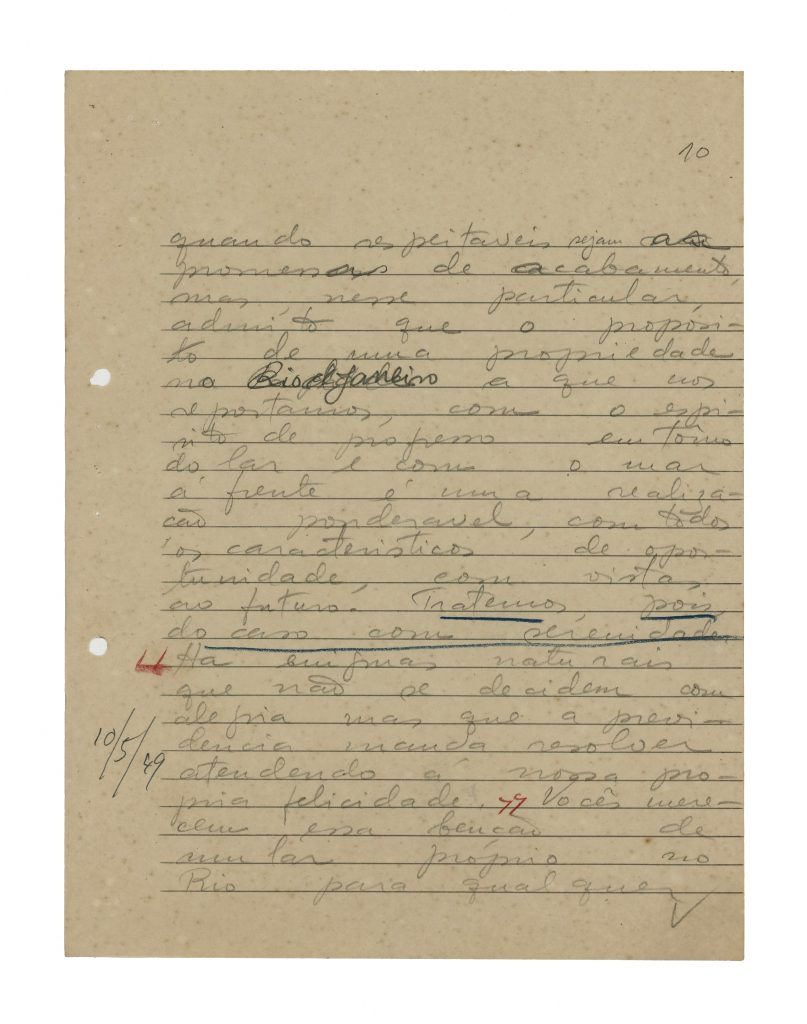 10
quando respeitaveis sejam as
promessas de acabamento,
mas, nesse particular,
admito que o proposi-
to de uma propriedade
no Rio de Janeiro a que nos
reportamos, com o espi-
rito de progresso em tôrno
do lar e com o mar
á frente é uma realiza-
ção ponderavel, com todos
os caracteristicos de opor-
tunidade, com vista,
ao futuro. Tratemos, pois,
do caso com serenidade.
"Ha enigmas naturais
que não se decidem com
alegria mas que a previ-
dencia manda resolver
10/5/49
atendendo á nossa pro-
pria felicidade." Vocês mere-
cem essa benção de
um lar próprio no
Rio para qualquer